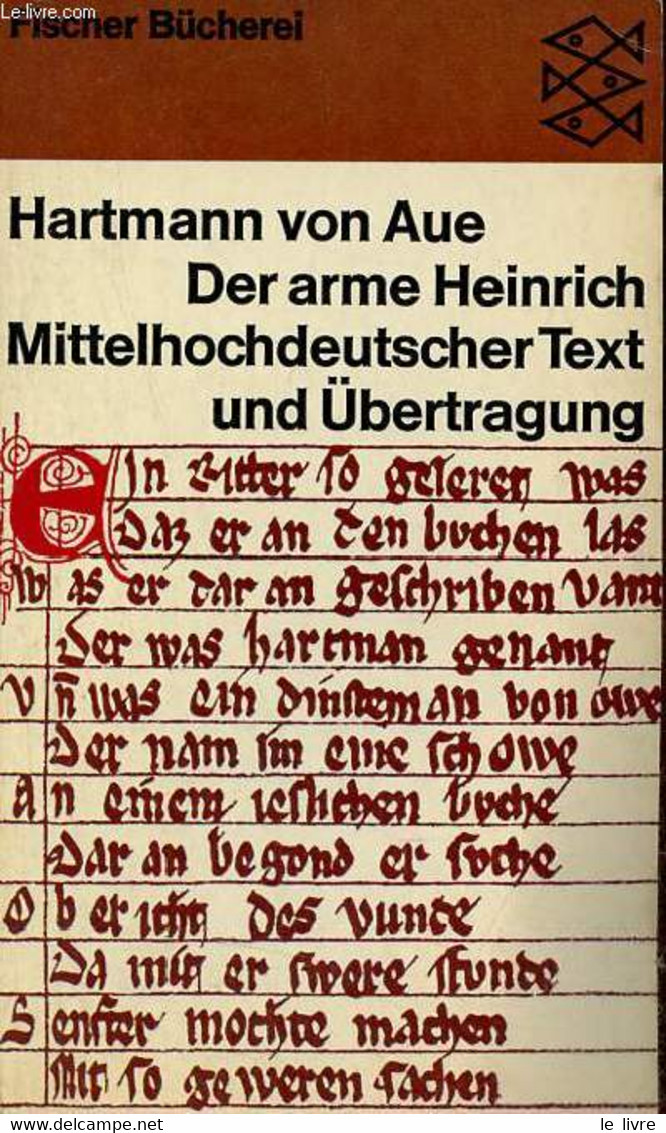 Le-livre.com
Fischer Bücherei
Hartmann von Aue
Der arme Heinrich
Mittelhochdeutscher Text
und Übertragung
Ein Ritter so geleret was
Daz er an den buchen las
Was er dar an geschriben vant
Der was hartman genant
Vn̄ was ein dinsteman von owe
Der nam im eine schowe
An einem ieslichen buche
Dar an begond er suche
Ob er icht des vunde
Da mit er swere stunde
Senfter mochte machen
Mit so geweren sachen
le livre